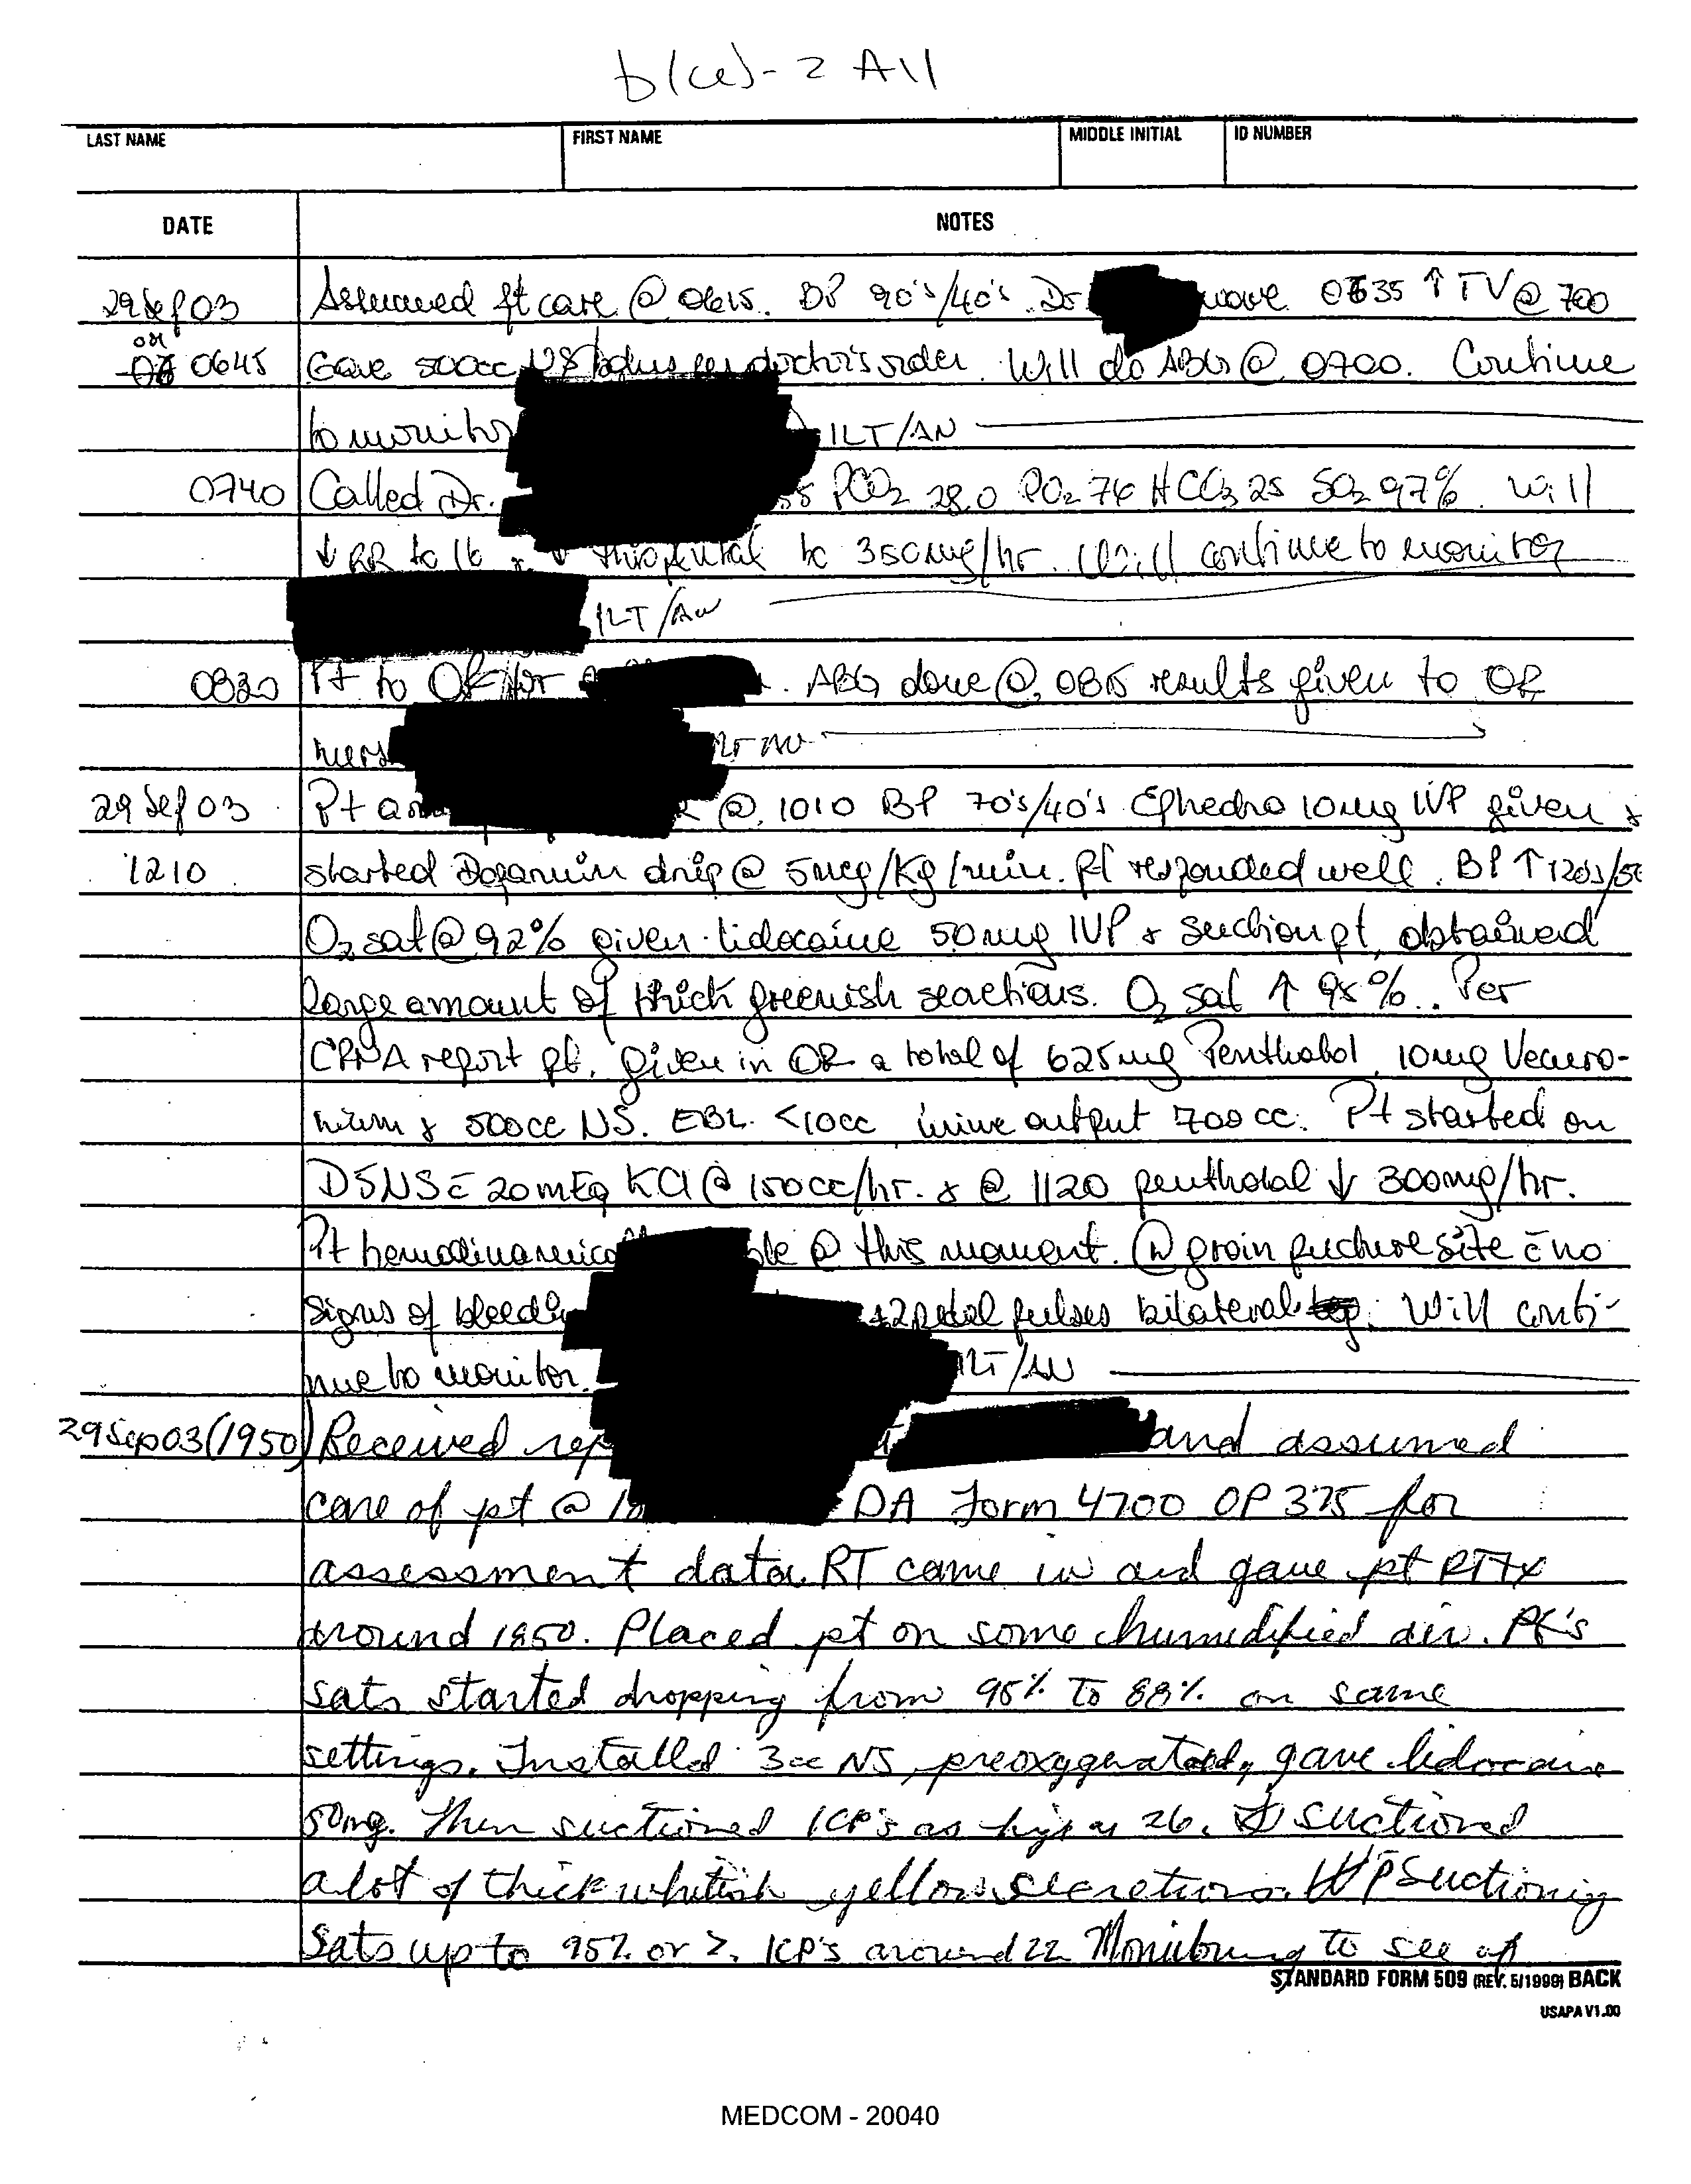 b(6)-2 All
LAST NAME FIRST NAME MIDDLE INITIAL ID NUMBER
DATE NOTES
29 Sep 03 Assumed pt care @ 0615. BP 90's/40's. Dr aware 0635 ↑ TV @ 700
0645 Gave 500cc NS bolus per doctor's order. Will do ABG @ 0700. Continue
to monitor 1LT/AN
0740 Called Dr. PCO2 28.0 PO2 76 HCO3 25 SO2 97% Will
↓ RR to 16 ↓ thiopental to 350mg/hr. Will continue to monitor
1LT/AN
0830 Pt to OR for . ABG done @ 0815 results given to OR
nurs
29 Sep 03 Pt @ 1010 BP 70's/40's Ephedra 10mg IVP given &
1210 started Dopamin drip @ 5mcg/Kg/min. Pt responded well. BP ↑ 120's/50
O2 sat @ 92% given lidocaine 50mg IVP & suction pt, obtained
large amount of thick greenish seactions. O2 sat ↑ 98%. Per
CRNA report pt. given in OR a total of 625mg Penthobol, 10mg Vecuro-
nium & 500cc NS. EBL <10cc urine output 700cc. Pt started on
D5NS c̄ 20mEq KCl @ 150cc/hr. & @ 1120 penthotal ↓ 300mg/hr.
Pt @ this moment. groin puncture site c̄ no
signs of +2 pedal pulses bilateral. Will conti-
nue to monitor. 1LT/AN
29Sep03(1950) Received and assumed
care of pt @ DA Form 4700 OP 375 for
assessment data. RT came in and gave pt RT Tx
around 1850. Placed pt on some humidified air. Pt's
sats started dropping from 95% to 88% on same
settings. Installed 3cc NS, preoxygenated, gave lidocaine
50mg. Then suctioned ICP's as high as 26. Suctioned
a lot of thick whitish yellow secretions. p̄ suctioning
Sats up to 95% or >. ICP's around 22 Monitoring to see if
STANDARD FORM 509 (REV. 5/1999) BACK
USAPA V1.00
MEDCOM - 20040